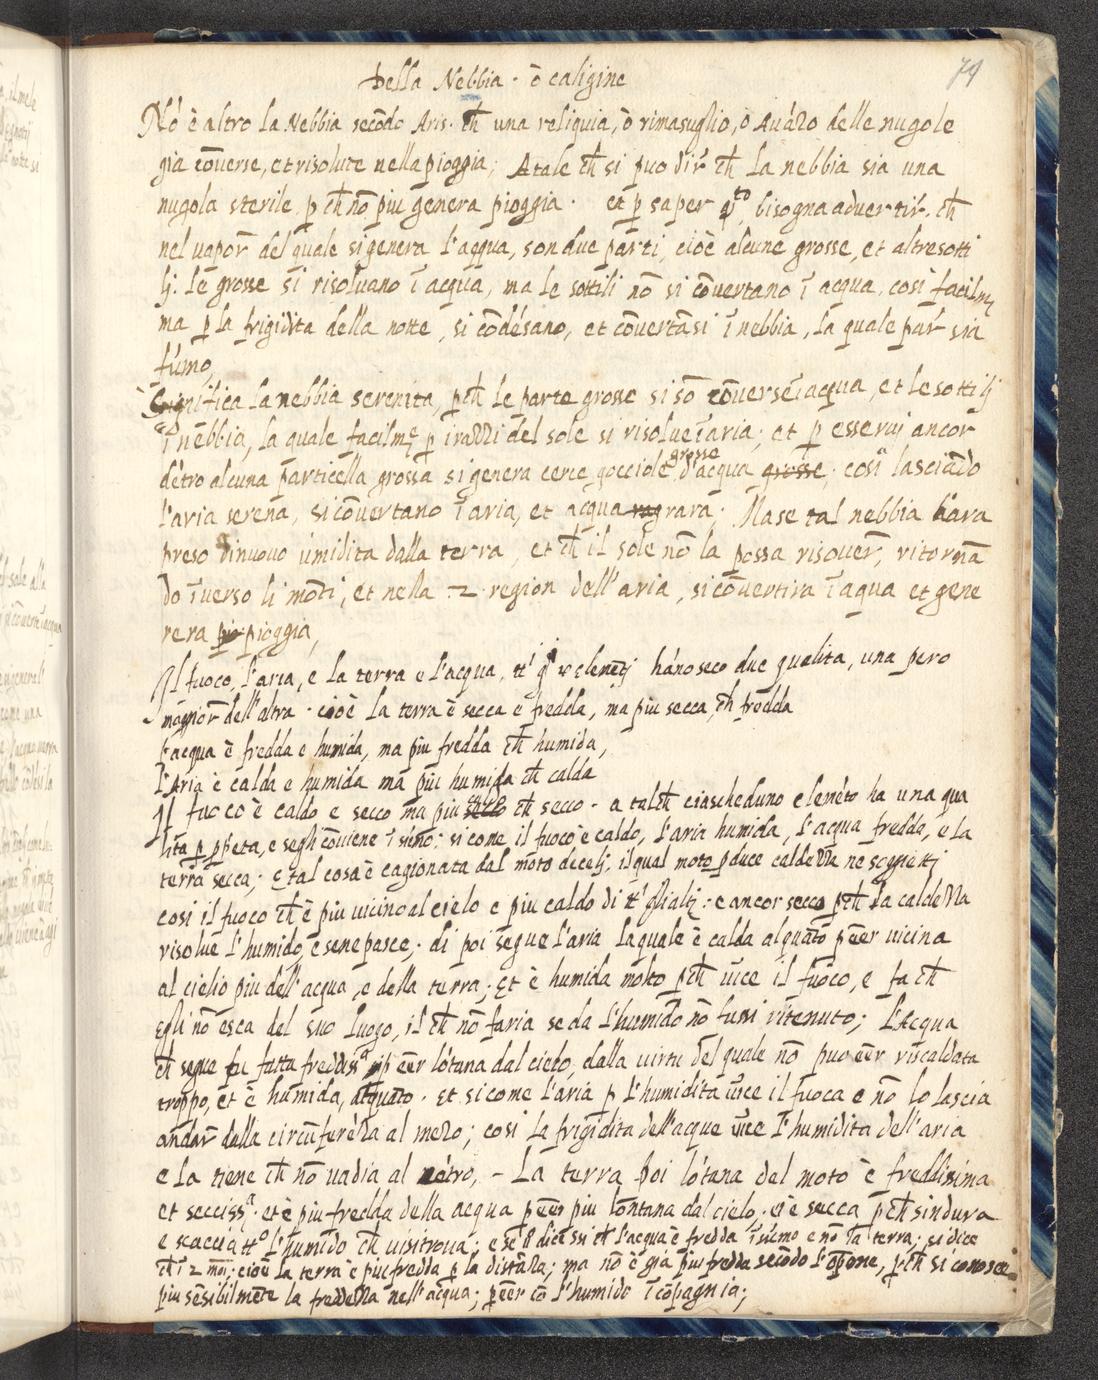 74
Della Nebbia · ò caligine
Nō è altro la Nebbia secōdo Aris. ch̄ una reliquia, ò rimasuglio, ò Auāzo delle nugole
gia cōuerse, et risolute nella pioggia; A tale ch̄ si puo dir ch̄ la nebbia sia una
nugola sterile, p ch̄ nō piu genera pioggia · et p saper q̄to, bisogna aduertir. ch̄
nel uapor del quale si genera l'acqua, son due parti, cioè alcune grosse, et altre sotti
lj. le grosse si risoluano ī acqua, ma le sottili nō si cōuertano ī acqua, così facilm̄
ma p la frigidita della notte, si cōdēsano, et cōuertāsi ī nebbia, la quale par sia
fumo,
Significa la nebbia serenita, pch̄ le parte grosse si sō cōuerse ī acqua, et le sottilj
ī nebbia, la quale facilm̄e p i razzi del sole si risolue ī aria; et p esserui ancor
dētro alcuna particella grossa si genera certe gocciole grosse d'acqua grosse; cosi lasciādo
l'aria serena, si cōuertano ī aria, et acqua rag rara; Ma se tal nebbia hara
preso dinuouo umidita dalla terra, et ch̄ il sole nō la possa risoluer, ritornā
do ī uerso li mōti, et nella 2 region dell'aria, si cōuertira ī aqua et gene
rera pio pioggia,
Il fuoco, l'aria, e la terra e l'acqua, elemētj hāno seco due qualita, una pero
maggior dell'altra · cioè la terra è secca e fredda, ma piu secca, ch̄ fredda
l'acqua è fredda e humida, ma piu fredda ch̄ humida,
l'Aria è calda e humida ma piu humida ch̄ calda
Il fuoco è caldo e secco ma piu ch̄ secco · a talch̄ ciascheduno elemēto ha una qua
lita p ppeta, e segli cōuiene ī : si come il fuoco è caldo, l'aria humida, l'acqua fredda, e la
terra secca; E tal cosa è cagionata dal moto de celj, il qual moto pduce caldezza ne soggettj
cosi il fuoco ch̄ è piu uicino al cielo e piu caldo di tt' gli altj: e ancor secco pch̄ la caldezza
risolue l'humido, e sene pasce; di poi segue l'aria laquale è calda alquāto p eēr uicina
al cielio piu dell'acqua, e della terra; Et è humida molto pch̄ uīce il fuoco, e fa ch̄
egli nō esca del suo luogo, il ch̄ nō faria se da l'humido nō fussi ritenuto; L'Acqua
ch̄ segue fu fatta freddisa p eēr lōtana dal cielo, dalla uirtu del quale nō puo eēr riscaldata
troppo, et è humida, alquāto · Et si come l'aria p l'humidita uīce il fuoca e nō lo lascia
andar dalla circūferēza al mezo; cosi la frigidita dell'acque uīce l'humidita dell'aria
e la tiene ch̄ nō uadia al cētro, – La terra poi lōtana del moto è freddissima
et secciss̄a · et è piu fredda della acqua p eēr piu lontana dal cielo · et è secca pch̄ sindura
e scaccia tto l'humido ch̄ uisitroua; e se si dicessi ch̄ l'acqua è fredda ī sūmo e nō la terra; si dice
ch̄ ī 2 modi; cioè la terra è piu fredda p la distāza; ma nō è gia piu fredda secōdo l'opōne, pch̄ si conosce
piu sēsibilmēte la freddezza nell'acqua; p eēr cō l'humido ī cōpagnia;